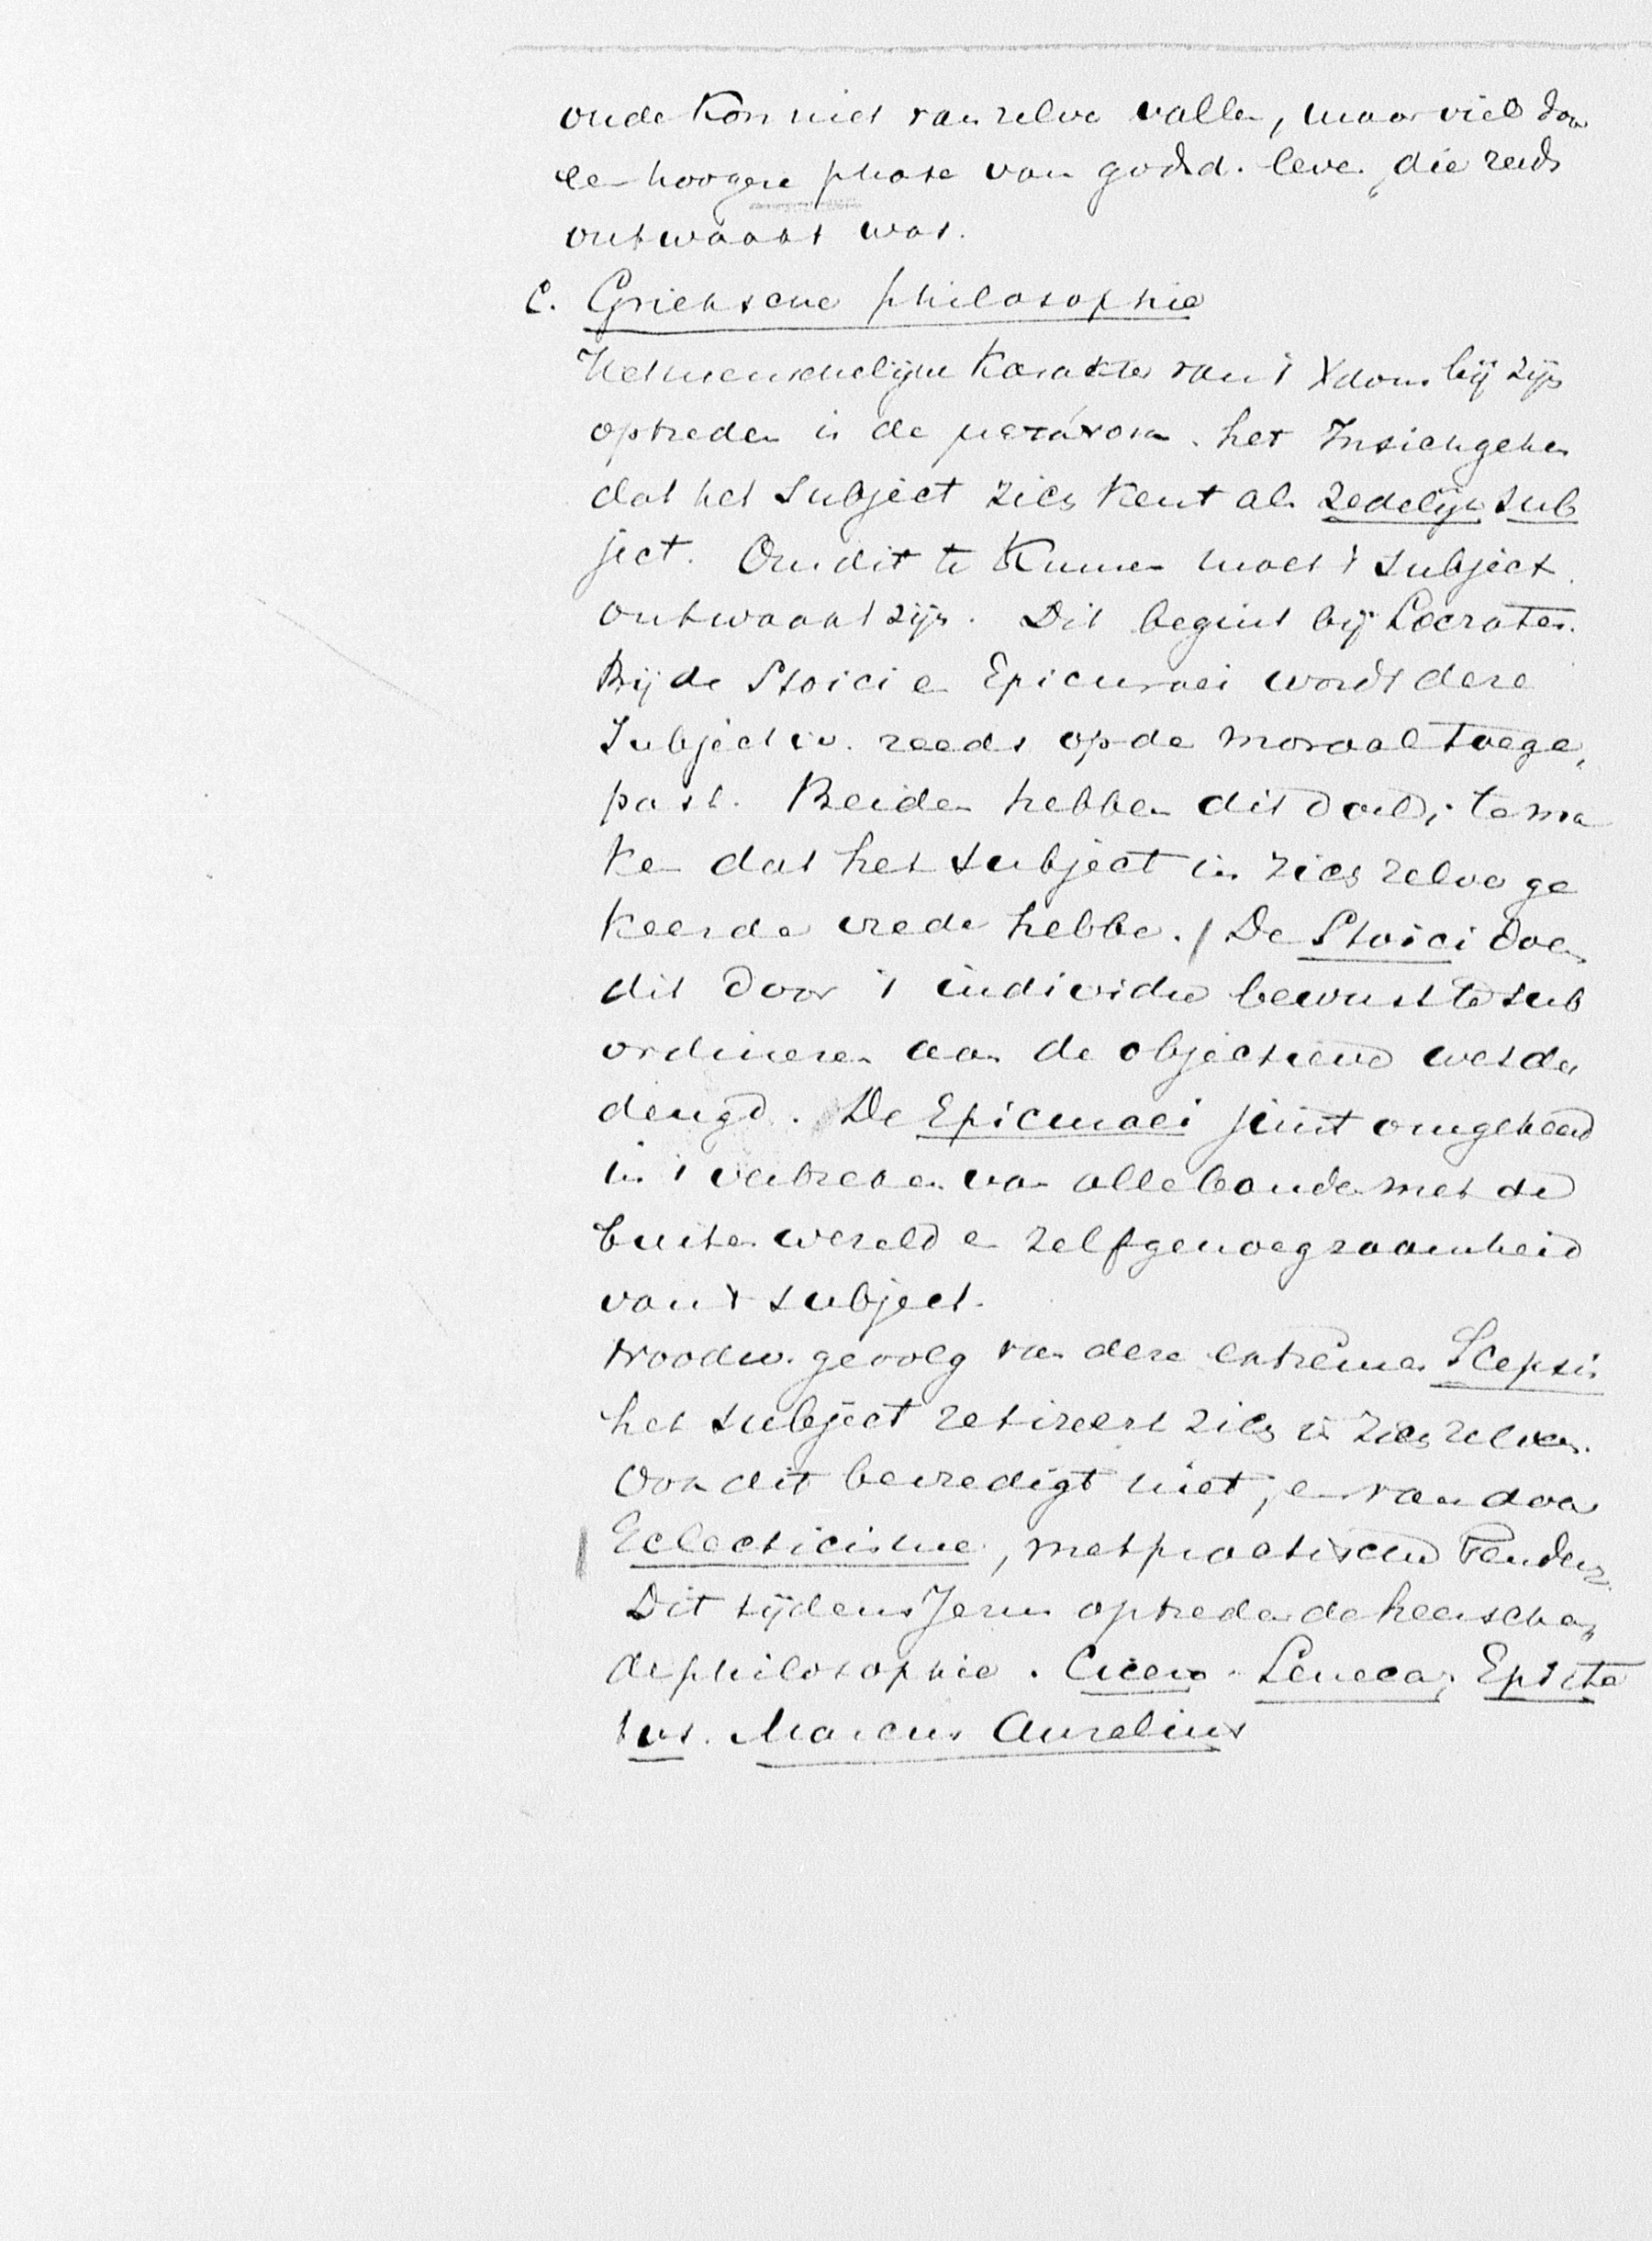 oude kon niet van zelve vallen, maar viel door
een hoogere phase van godsd. leven, die reeds
ontwaakt was.
C. Grieksche philosophie
Het menschelijke karakter van 't Xdom bij zijn
optreden is de μετάνοια. het Insichgehen
dat het subject zich kent als zedelijk sub
ject. Om dit te kunnen moest 't subject
ontwaakt zijn. Dit begint bij Socrates.
Bij de Stoici en Epicuraei wordt deze
Subjectiv. reeds op de moraal toege,
past. Beiden hebben dit doel, te ma
ken dat het subject in zich zelve ge
keerde vrede hebbe. / De Stoici doen
dit door 't individu bewust te sub
ordineren aan de objectieve wet der
deugd. De Epicuraei juist omgekeerd
in 't verbreken van alle banden met de
buitenwereld en zelfgenoegzaamheid
van 't subject.
Noodw. gevolg van deze extremen Scepsis
het subject retireert zich in zich zelven.
Ook dit bevredigt niet, en van daar
Eclecticisme, met practische tendenz.
Dit tijdens Jezus optreden de heerschen,
de philosophie. Cicero. Seneca; Epicte
tus. Marcus Aurelius